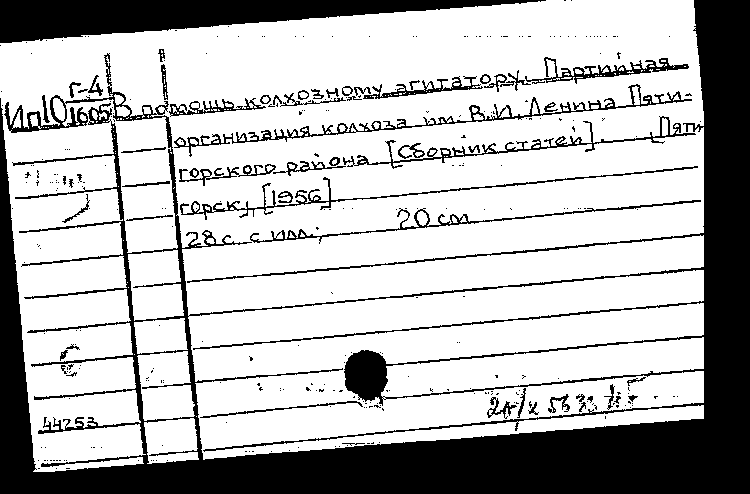 Г-4
Ип10 1605 В помощь колхозному агитатору. Партийная
организация колхоза им. В.И. Ленина Пяти-
горского района [Сборник статей]. [Пяти
горск], [1956]
28 с. с илл.; 20 см
44253